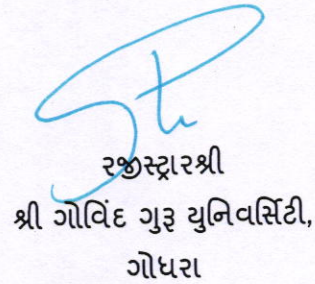 રજીસ્ટ્રારશ્રી
શ્રી ગોવિંદ ગુરૂ યુનિવર્સિટી,
ગોધરા